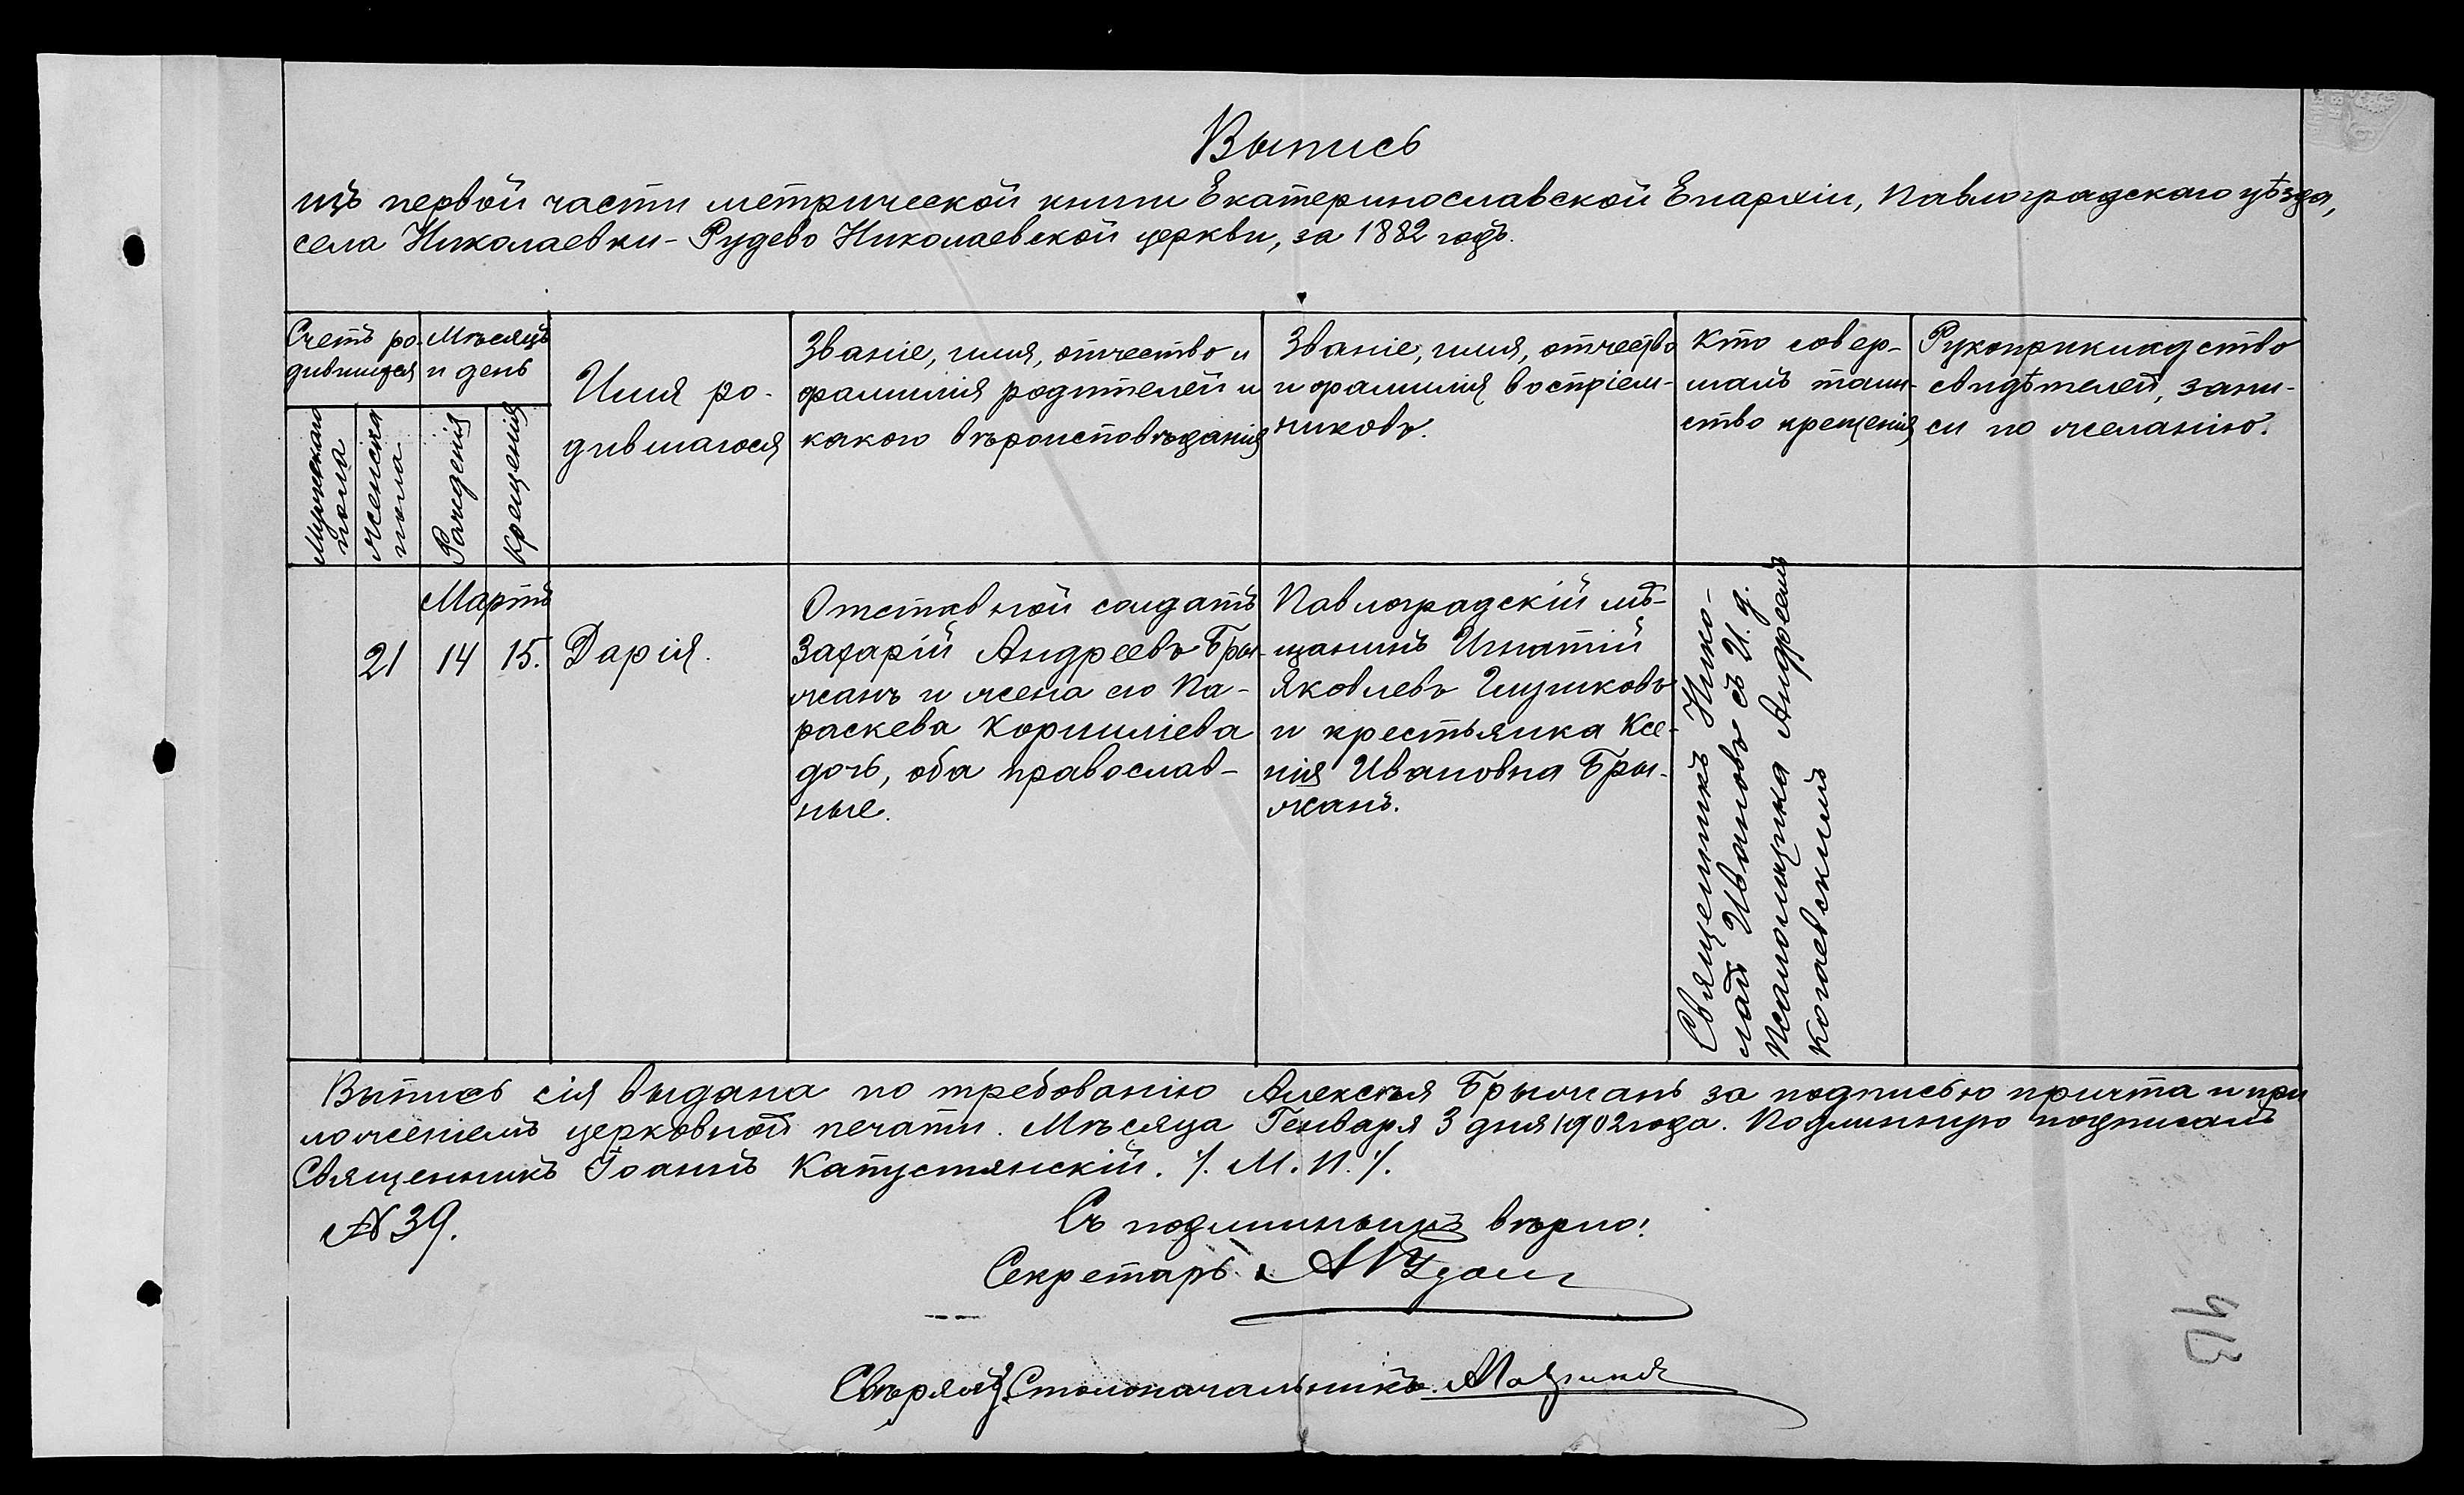 Выпись
изъ первой части метрической книги Екатеринославской Епархіи, Павлоградскаго уѣзда,
села Николаевки-Рудево Николаевской церкви, за 1882 годъ.
Счетъ ро-
дившихся
Мужескаго
пола
Женска
пола
Мѣсяцъ
и день
Рожденія
Крещенія
Имя ро-
дившагося
Званіе, имя, отчество и
фамилія родителей и
какого вѣроисповѣданія
Званіе, имя, отчество
и фамилія воспріем-
никовъ.
Кто совер-
шалъ таин-
ство крещенія
Рукоприкладство
свидѣтелей, запи-
си по желанію.
Мартъ
21 14 15.
Дарія.
Отставной солдатъ
Захарій Андреевъ Бры-
жанъ и жена его Па-
раскева Корниліева
дочь, оба православ-
ные.
Павлоградскій мѣ-
щанинъ Игнатій
Яковлевъ Глушковъ
и крестьянка Ксе-
нія Ивановна Бры-
жанъ.
Священникъ Нико-
лай Ивановъ съ И. д.
Псаломщика Андреемъ
Выпись сія выдана по требованію Алексѣя Брыжанъ за подписью причта и при
ложеніемъ церковной печати. Мѣсяца Генваря 3 дня 1902 года. Подлинную подписалъ
Священникъ Іоаннъ Капустянскій. /. М. П. /.
N 39.
Съ подлиннымъ вѣрно:
Секретарь
Свѣрялъ: Столоначальникъ
413